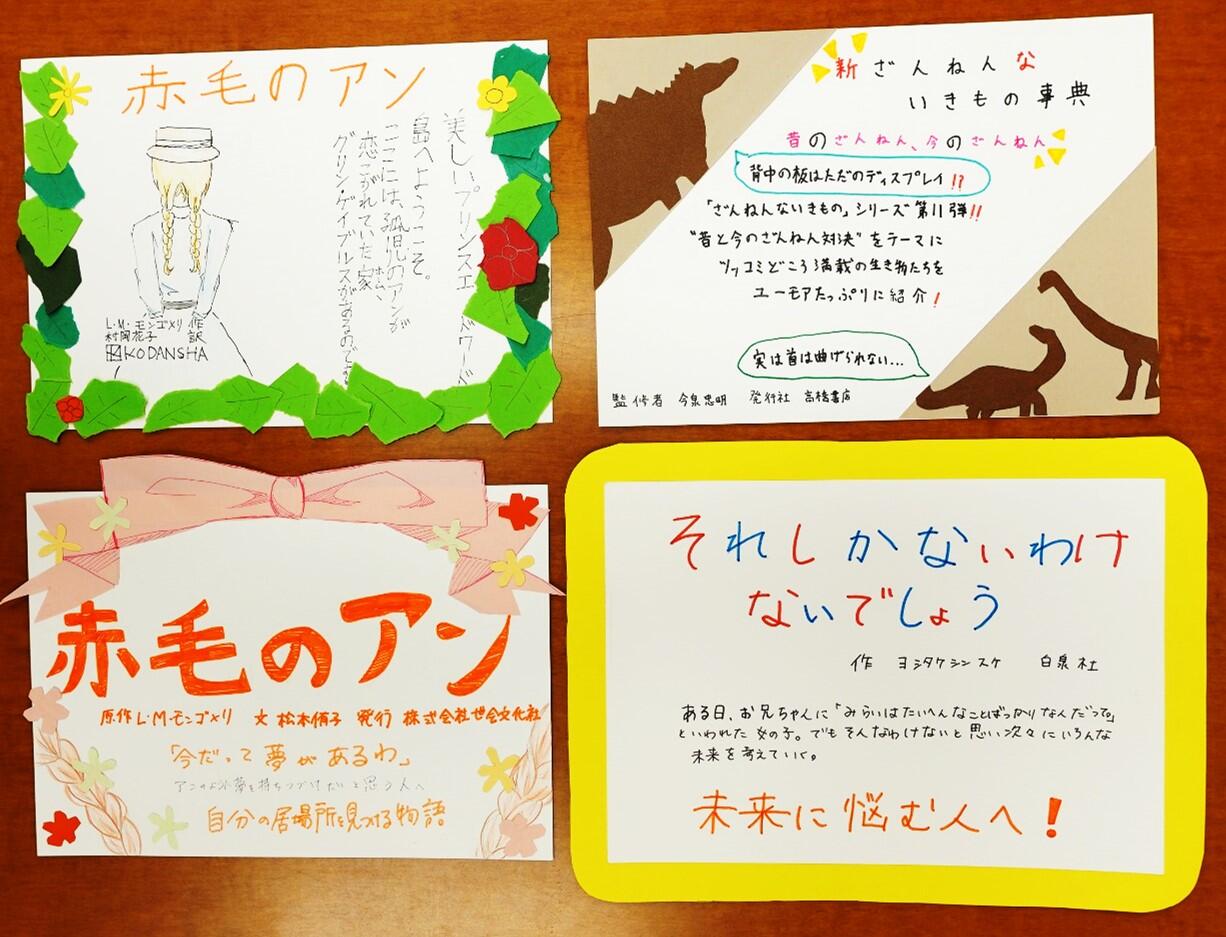 赤毛のアン
美しいプリンスエドワード
島へようこそ。
ここには、孤児のアンが
恋こがれていた家、
ホーム
グリン・ゲイブルスがあるのです
L・M・モンゴメリ 作
村岡花子 訳
KODANSHA
新ざんねんな
いきもの事典
昔のざんねん、今のざんねん
背中の板はただのディスプレイ!?
「ざんねんないきもの」シリーズ第11弾!!
"昔と今のざんねん対決"をテーマに
ツッコミどころ満載の生き物たちを
ユーモアたっぷりに紹介!
実は首は曲げられない...
監修者 今泉忠明 発行社 高橋書店
赤毛のアン
原作 L・M・モンゴメリ 文 松本侑子 発行 株式会社世会文化社
「今だって夢があるわ」
アンのような夢を持ちつづけたいと思う人へ
自分の居場所を見つける物語
それしかないわけ
ないでしょう
作 ヨシタケシンスケ 白泉社
ある日、お兄ちゃんに「みらいはたいへんなことばっかりなんだって」
といわれた女の子。でもそんなわけないと思い次々にいろんな
未来を考えていく。
未来に悩む人へ!